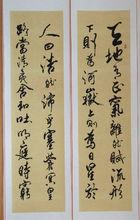 天地有正氣雜然賦流形
下則為河嶽上則為日星於
人曰浩然沛乎塞蒼冥皇
路當清夷含和吐明庭時窮